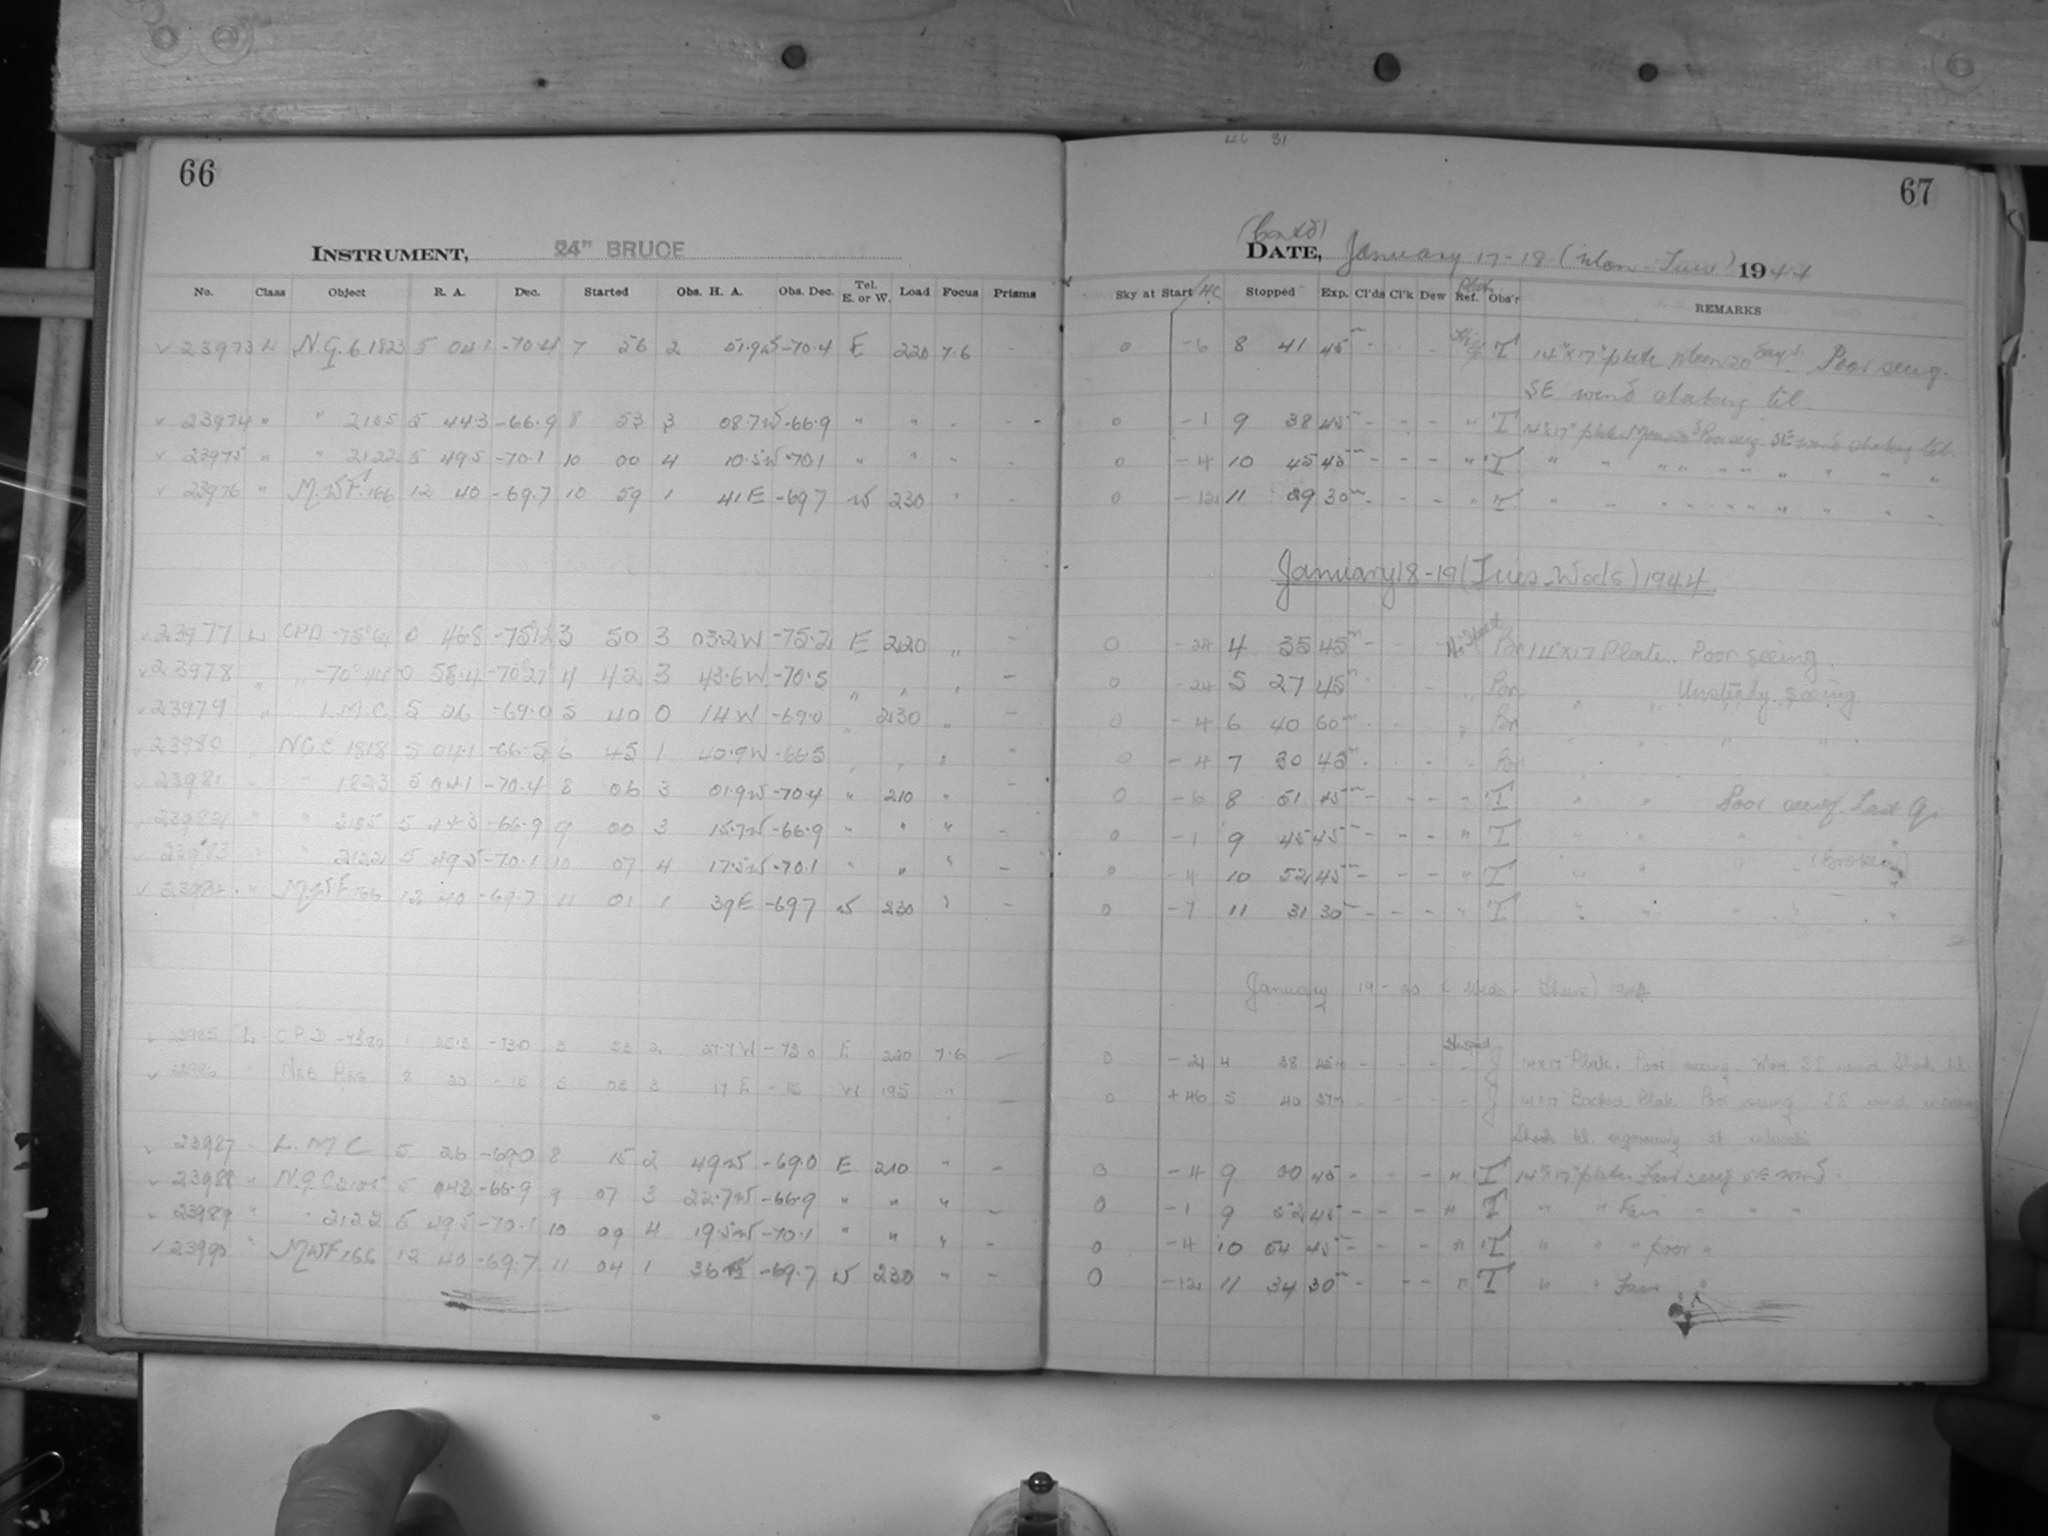 66
INSTRUMENT, 24" BRUCE
No. Class Object R. A. Dec. Started Obs. H. A. Obs. Dec. Tel. E. or W. Load Focus Prisms
23973 L N.G.C. 1823 5 04.1 -70.4 7 56 2 51.9W -70.4 E 220 7.6 -
23974 " " 2105 5 44.3 -66.9 8 53 3 08.7W -66.9 " " " -
23975 " " 2122 5 49.5 -70.1 10 00 4 10.5W -70.1 " " " -
23976 " M.W.F. 166 12 40 -69.7 10 59 1 41E -69.7 W 230 " -
23977 L CPD -75°64 0 46.8 -75°12 3 50 3 03.2W -75.2 E 220 " -
23978 " " -70° 0 58.4 -70°27 4 42 3 43.6W -70.5 " " " -
23979 " L.M.C. 5 26 -69.0 5 40 0 14W -69.0 " 230 " -
23980 " NGC 1818 5 04.1 -66.5 6 45 1 40.9W -66.5 " " " -
23981 " " 1823 5 04.1 -70.4 8 06 3 01.9W -70.4 " 210 " -
23982 " " 2105 5 44.3 -66.9 9 00 3 15.7W -66.9 " " " -
23983 " " 2122 5 49.5 -70.1 10 07 4 17.5W -70.1 " " " -
23984 " M.W.F. 166 12 40 -69.7 11 01 1 39E -69.7 W 230 " -
23985 L CPD 1 -73.0 3 2 27.7W -73.0 E 220 7.6 -
23986 " 30 -15 5 03 3 17 E -15 W 195 " -
23987 " L.M.C 5 26 -69.0 8 15 2 49W -69.0 E 210 " -
23988 " N.G.C 2105 5 44.3 -66.9 9 07 3 22.7W -66.9 " " " -
23989 " " 2122 5 49.5 -70.1 10 09 4 19.5W -70.1 " " " -
23990 " MWF 166 12 40 -69.7 11 04 1 36E -69.7 W 230 " -
46 31
67
(Contd)
DATE, January 17-18 (Mon-Tues) 1944
Sky at Start HC Stopped Exp. Cl'ds Cl'k Dew Plate Ref. Obs'r REMARKS
0 -6 8 41 45m - - - T 14"x17" plate. Moon 20 days. Poor seeing.
SE. wind shaking tel.
0 -1 9 38 45m - - - " T 14"x17" plate Moon Poor seeing. SE wind shaking tel.
0 -4 10 45 45m - - - " T " " " " " " " " "
0 -12 11 29 30m - - - " T " " " " " " " " "
January 18-19 (Tues-Weds) 1944
0 -28 4 35 45m - - - Br 14"x17 Plate. Poor seeing.
0 -24 5 27 45m - - - " Br " " Unsteady seeing.
0 -4 6 40 60m - - - " Br " " " "
0 -4 7 30 45m - - - " Br " " " "
0 -6 8 51 45m - - - " T " " Poor seeing. Last Q.
0 -1 9 45 45m - - - " T " " " "
0 -4 10 52 45m - - - " T " " " (Broken)
0 -7 11 31 30m - - - " T " " " "
January 19-20 (Weds - Thurs) 1944
0 -21 4 38 45m - - - J 14x17 Plate. Poor seeing. SE wind Shook tel.
0 +46 5 40 37m - - - J 14x17 Backed Plate. Poor seeing SE wind
Shook tel. vigorously at intervals
0 -4 9 00 45 - - - " T 14"x17" plate. Fair seeing SE wind.
0 -1 9 52 45 - - - " T " " Fair " " "
0 -4 10 54 45m - - - " T " " " poor "
0 -12 11 34 30m - - - " T " " Fair